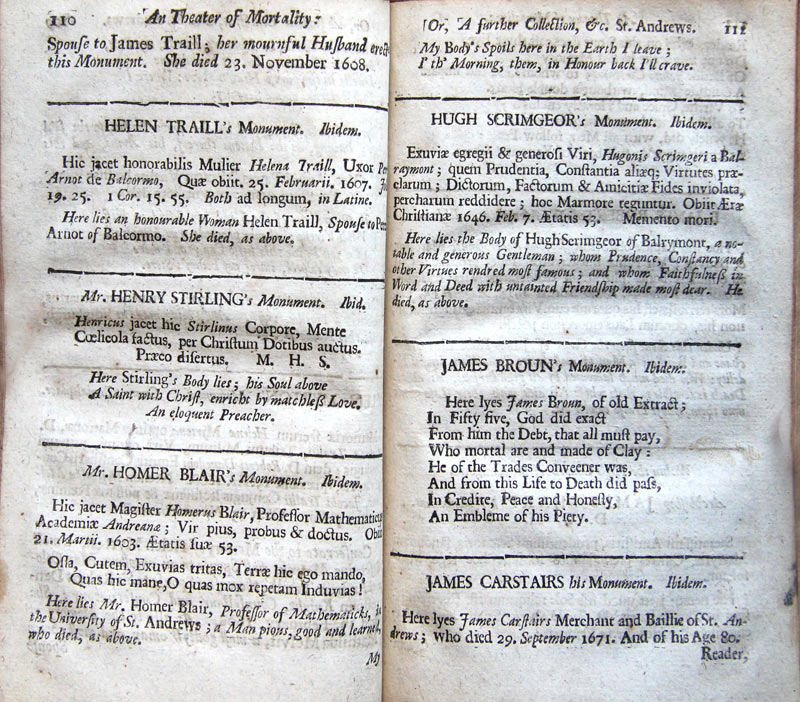 110 An Theater of Mortality:
Spouse to James Traill; her mournful Husband erect
this Monument. She died 23. November 1608.
HELEN TRAILL's Monument. Ibidem.
Hic jacet honorabilis Mulier Helena Traill, Uxor Pe
Arnot de Balcormo, Quæ obiit. 25. Februarii. 1607.
19. 25. 1 Cor. 15. 55. Both ad longum, in Latine.
Here lies an honourable Woman Helen Traill, Spouse to Pe
Arnot of Balcormo. She died, as above.
Mr. HENRY STIRLING's Monument. Ibid.
Henricus jacet hic Stirlinus Corpore, Mente
Cœlicola factus, per Christum Dotibus auctus.
Præco disertus. M. H. S.
Here Stirling's Body lies; his Soul above
A Saint with Christ, enricht by matchless Love.
An eloquent Preacher.
Mr. HOMER BLAIR's Monument. Ibidem.
Hic jacet Magister Homerus Blair, Professor Mathematicus
Academiæ Andreanæ; Vir pius, probus & doctus. Obiit
21. Martii. 1603. Ætatis suæ 53.
Ossa, Cutem, Exuvias tritas, Terræ hic ego mando,
Quas hic mane, O quas mox repetam Induvias!
Here lies Mr. Homer Blair, Professor of Mathematicks, in
the University of St. Andrews; a Man pious, good and learned,
who died, as above.
My
Or, A further Collection, &c. St. Andrews. 111
My Body's Spoils here in the Earth I leave;
I' th' Morning, them, in Honour back I'll crave.
HUGH SCRIMGEOR's Monument. Ibidem.
Exuviæ egregii & generosi Viri, Hugonis Scrimgeri a Bal-
raymont; quem Prudentia, Constantia aliæq; Virtutes præ-
clarum; Dictorum, Factorum & Amicitiæ Fides inviolata,
percharum reddidere; hoc Marmore teguntur. Obiit Æræ
Christianæ 1646. Feb. 7. Ætatis 53. Memento mori.
Here lies the Body of Hugh Scrimgeor of Balrymont, a no-
table and generous Gentleman; whom Prudence, Constancy and
other Virtues rendred most famous; and whom Faithfulness in
Word and Deed with untainted Friendship made most dear. He
died, as above.
JAMES BROUN's Monument. Ibidem.
Here lyes James Broun, of old Extract;
In Fifty five, God did exact
From him the Debt, that all must pay,
Who mortal are and made of Clay:
He of the Trades Conveener was,
And from this Life to Death did pass,
In Credite, Peace and Honesty,
An Embleme of his Piety.
JAMES CARSTAIRS his Monument. Ibidem.
Here lyes James Carstairs Merchant and Baillie of St. An-
drews; who died 29. September 1671. And of his Age 80.
Reader,